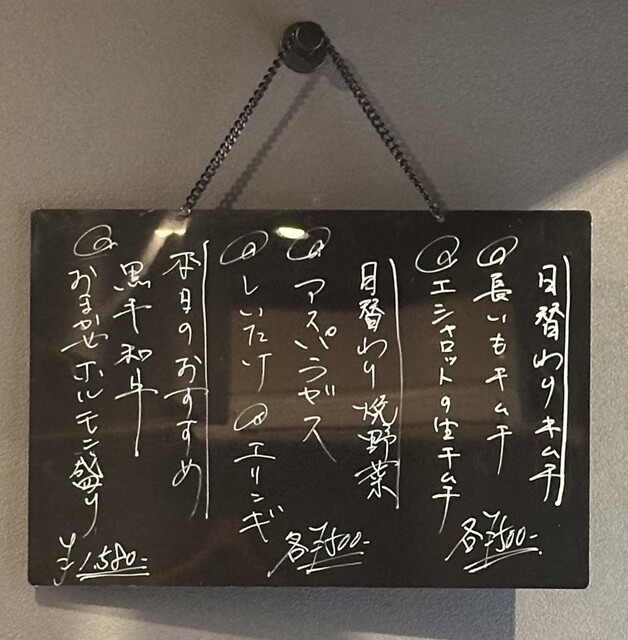 日替わりキムチ
長いもキムチ
エシャロットの生キムチ
各¥500-
日替わり焼野菜
アスパラガス
しいたけ エリンギ
各¥500-
本日のおすすめ
黒毛和牛
おまかせホルモン盛り
¥1,580-